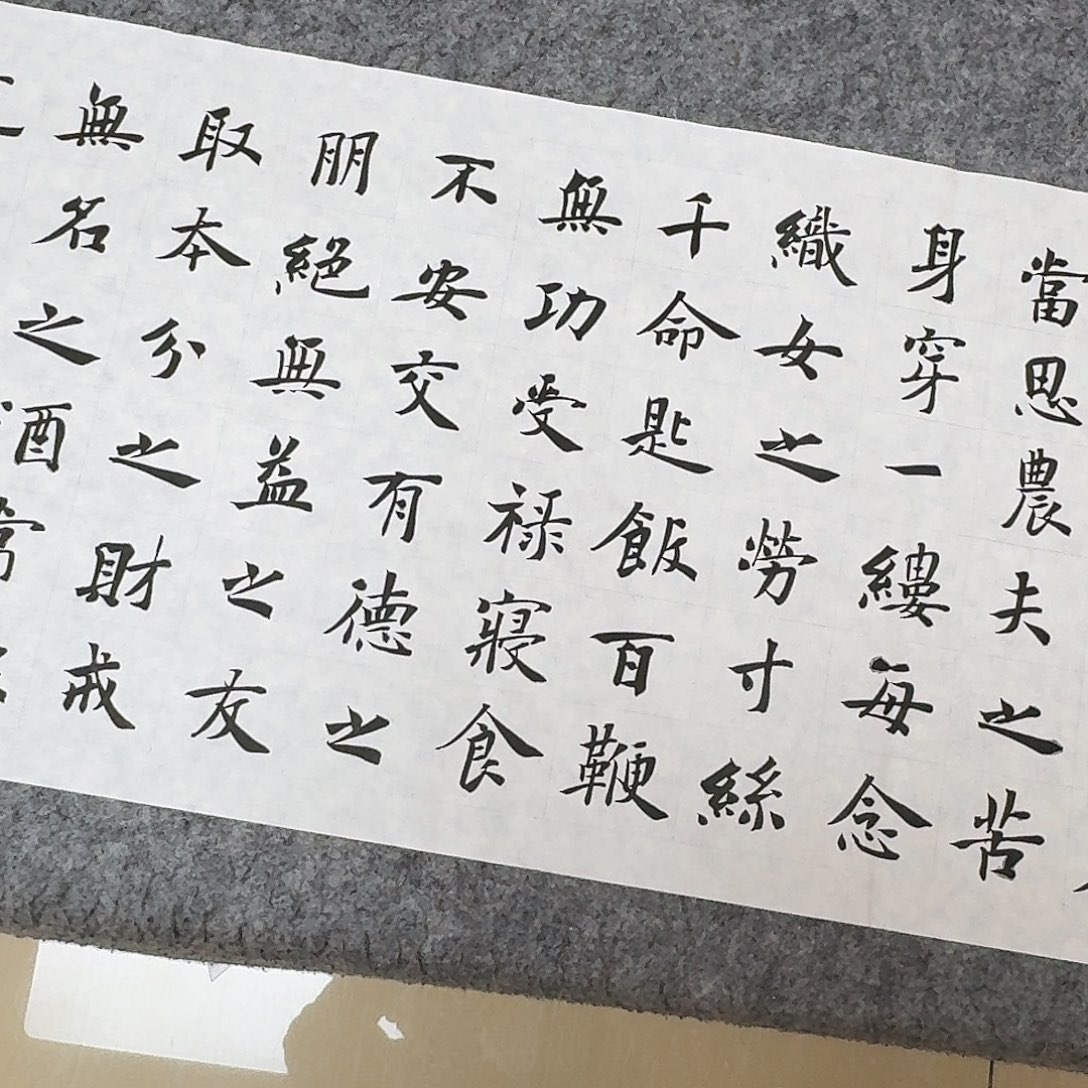 當思農夫之苦
身穿一縷每念
織女之勞寸絲
千命匙飯百鞭
無功受祿寢食
不安交有德之
朋絕無益之友
取本分之財戒
無名之酒常